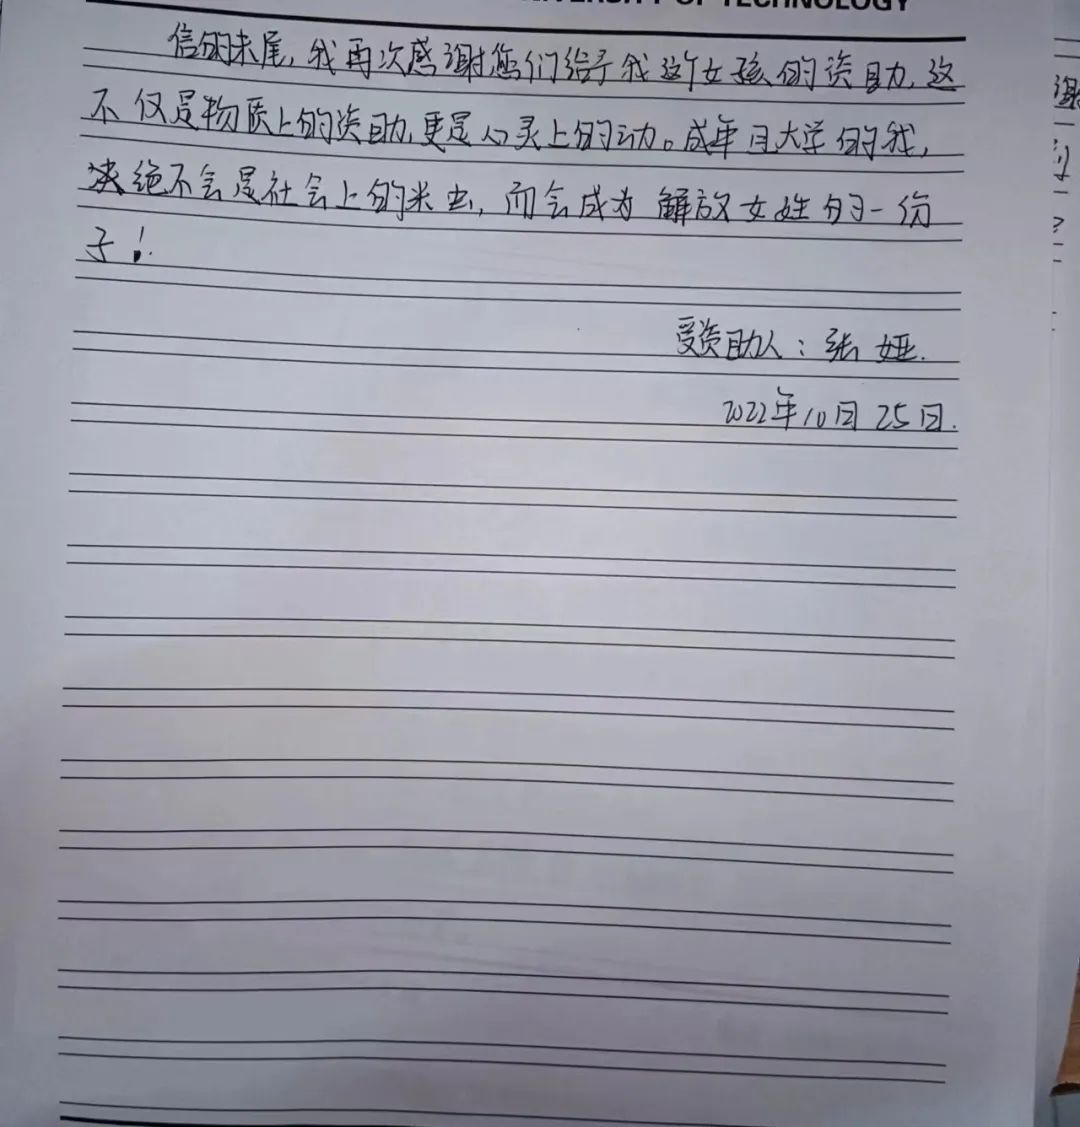 UNIVERSITY OF TECHNOLOGY
信的末尾,我再次感谢您们给予我这个女孩的资助,这
不仅是物质上的资助,更是心灵上的动。成年且大学的我,
决绝不会是社会上的米虫,而会成为解放女姓的一份
子!
受资助人:张娅.
2022年10月25日.